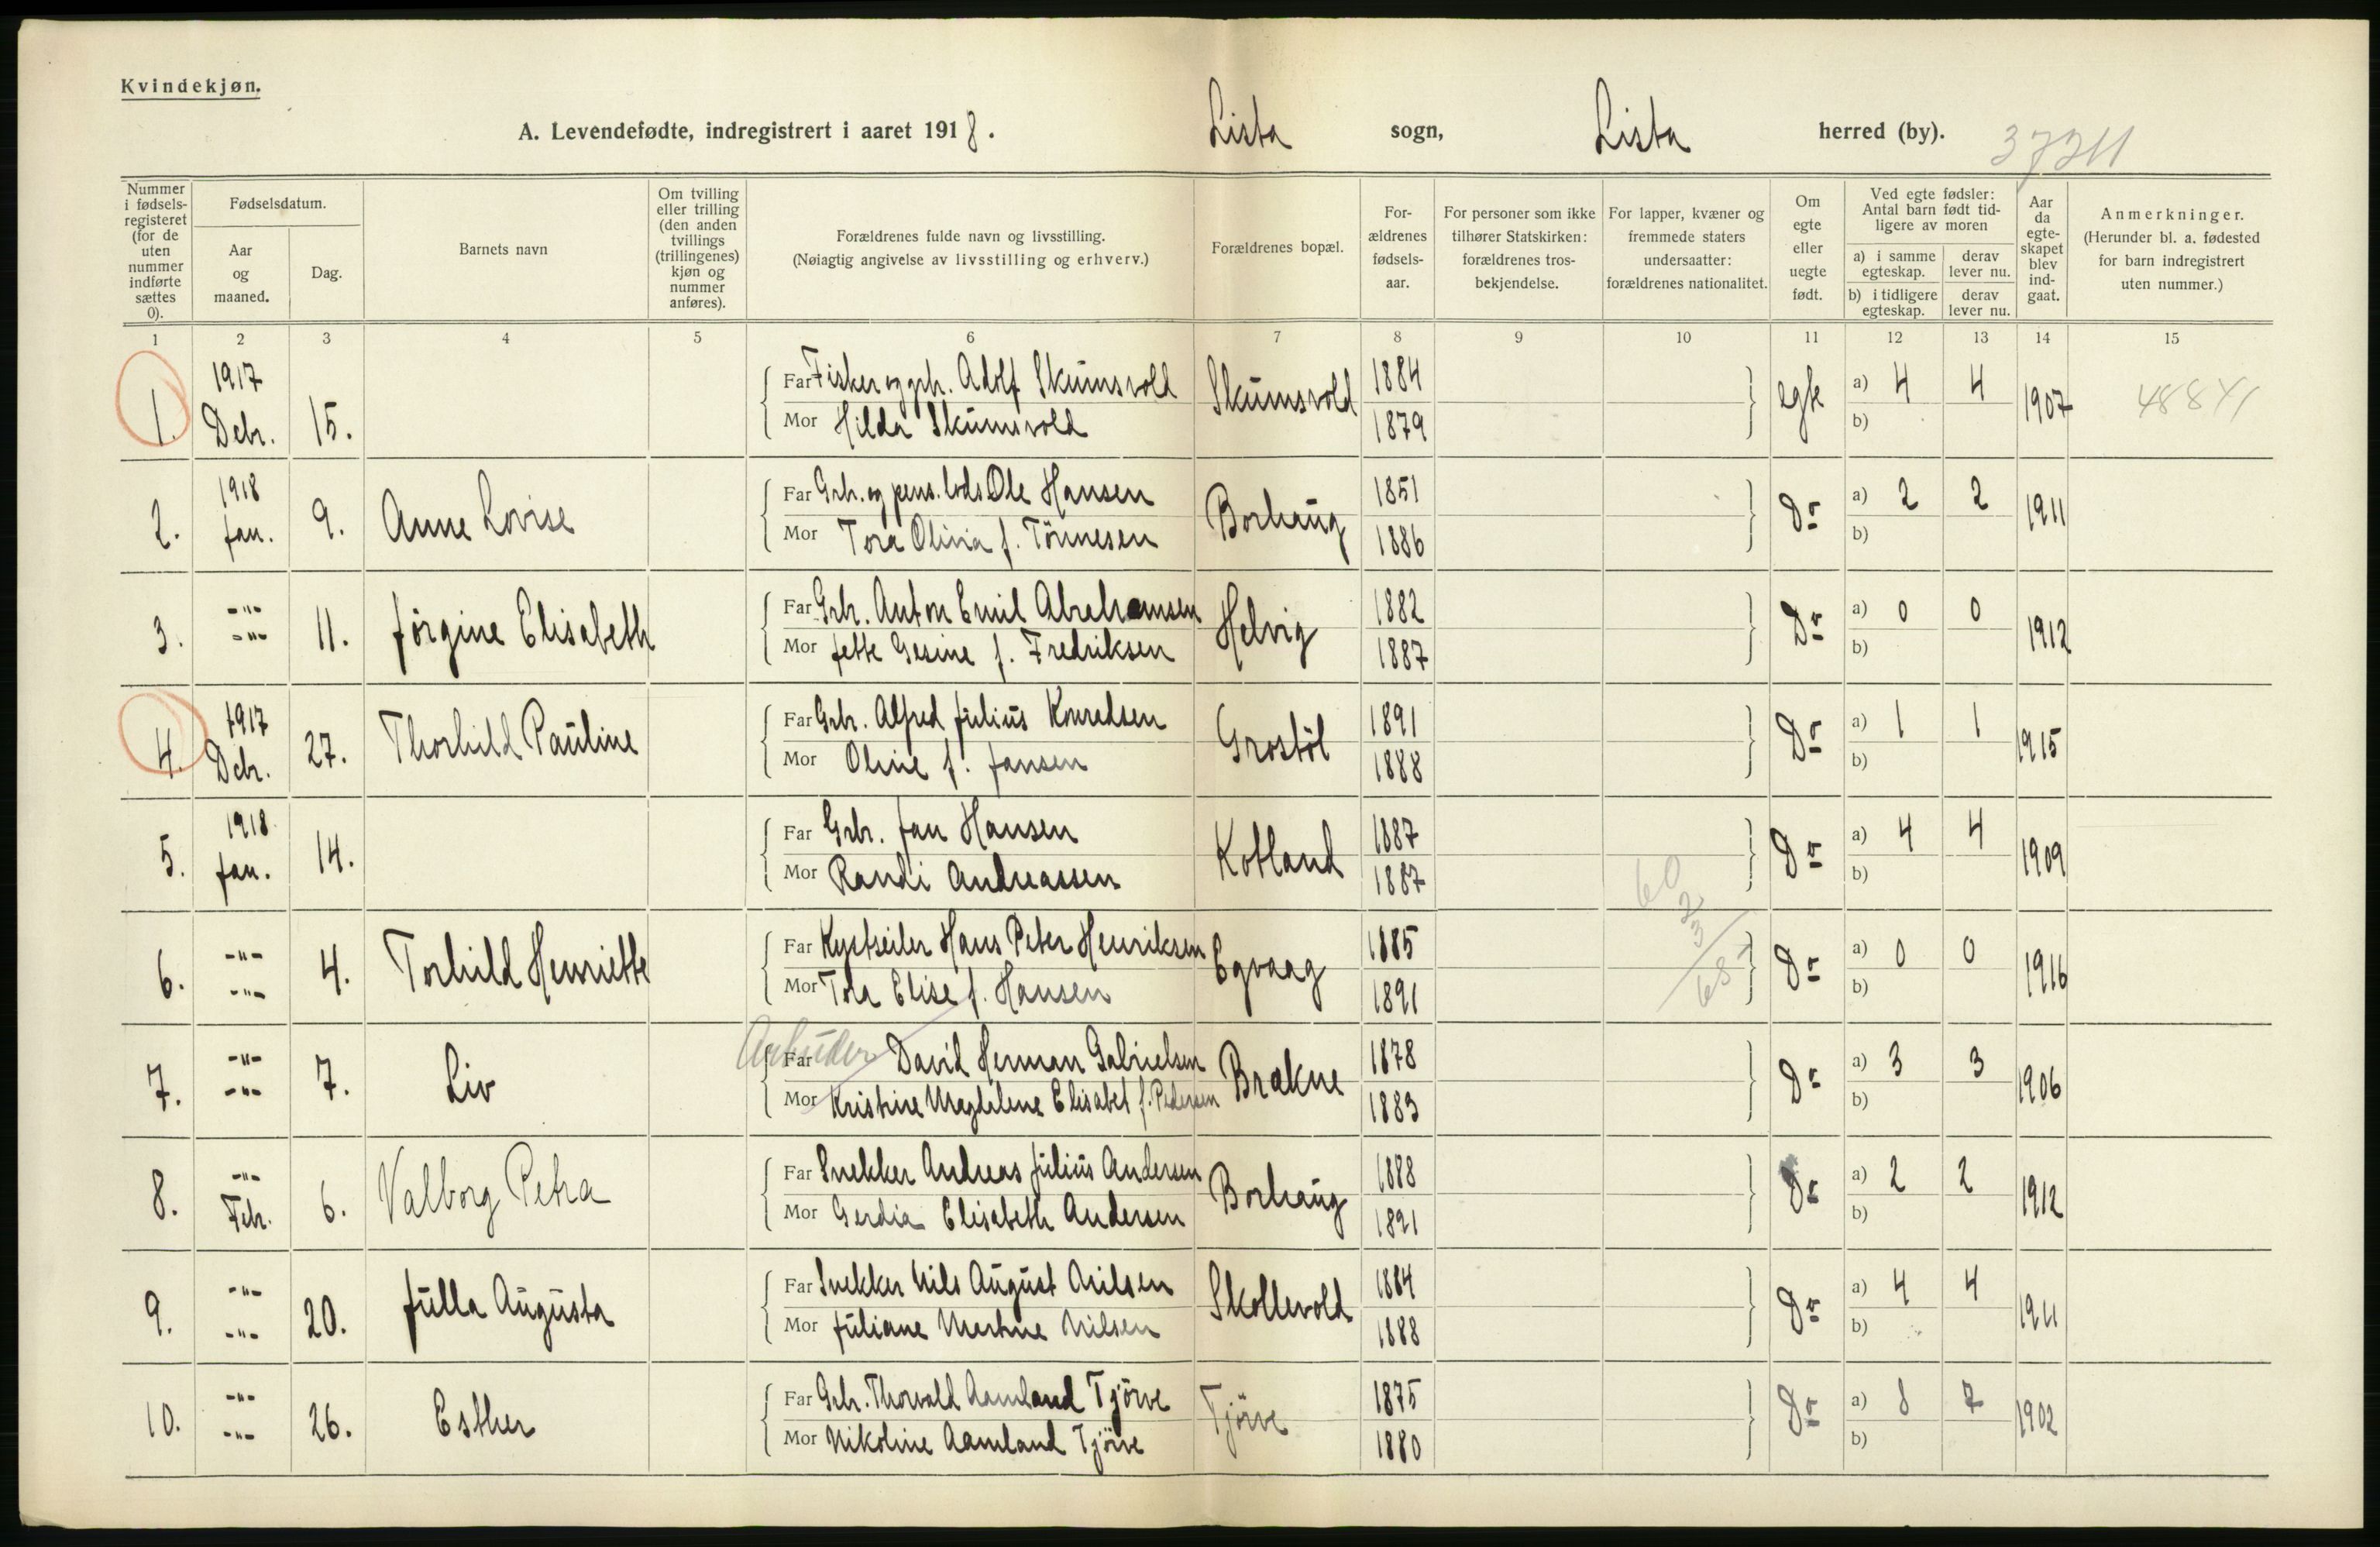 Kvindekjøn.
A. Levendefødte, indregistrert i aaret 1918. Lista sogn, Lista herred (by). 37211
Nummer i fødselsregisteret (for de uten nummer indførte sættes 0).
Fødselsdatum.
Aar og maaned.
Dag.
Barnets navn
Om tvilling eller trilling (den anden tvillings (trillingenes) kjøn og nummer anføres).
Forældrenes fulde navn og livsstilling.
(Nøiagtig angivelse av livsstilling og erhverv.)
Forældrenes bopæl.
For-ældrenes fødsels-aar.
For personer som ikke tilhører Statskirken: forældrenes tros-bekjendelse.
For lapper, kvæner og fremmede staters undersaatter: forældrenes nationalitet.
Om egte eller uegte født.
Ved egte fødsler: Antal barn født tid-ligere av moren
a) i samme egteskap. derav lever nu.
b) i tidligere egteskap. derav lever nu.
Aar da egte-skapet blev ind-gaat.
Anmerkninger.
(Herunder bl. a. fødested for barn indregistrert uten nummer.)
1 2 3 4 5 6 7 8 9 10 11 12 13 14 15
1. 1917 Debr. 15. Far Fisker og grb. Adolf Skumsvold Skumsvold 1884 egte a) 4 4 1907 48841
Mor Hilda Skumsvold 1879 b)
2. 1918 Jan. 9. Anne Lovise Far Grb. og pens. lods Ole Hansen Borhaug 1851 Do a) 2 2 1911
Mor Tora Olivia f. Tönnesen 1886 b)
3. -"- -"- 11. Jörgine Elisabeth Far Grb. Anton Emil Abrahamsen Helvig 1882 Do a) 0 0 1912
Mor Jette Gesine f. Fredriksen 1887 b)
4. 1917 Debr. 27. Thorhild Pauline Far Grb. Alfred Julius Konradsen Grostöl 1891 Do a) 1 1 1915
Mor Oline f. Jansen 1888 b)
5. 1918 Jan. 14. Far Grb. Jan Hansen Kotland 1887 Do a) 4 4 1909
Mor Randi Andreassen 1887 b)
60
2
3
65
6. -"- -"- 4. Torhild Henriette Far Kystseiler Hans Peter Henriksen Egvaag 1885 Do a) 0 0 1916
Mor Tola Elise f. Hansen 1891 b)
7. -"- -"- 7. Liv Arbuder Far David Herman Gabrielsen Brakne 1878 Do a) 3 3 1906
Mor Kristine Magdalene Elisabet f. Pedersen 1883 b)
8. -"- Febr. 6. Valborg Petra Far Snekker Andreas Julius Andersen Borhaug 1888 Do a) 2 2 1912
Mor Gerdia Elisabeth Andersen 1891 b)
9. -"- -"- 20. Julla Augusta Far Snekker Nils August Nilsen Skollevold 1884 Do a) 4 4 1911
Mor Juliane Martine Nilsen 1888 b)
10. -"- -"- 26. Esther Far Grb. Thorvald Aamland Tjörve Tjörve 1875 Do a) 8 7 1902
Mor Nikoline Aamland Tjörve 1880 b)